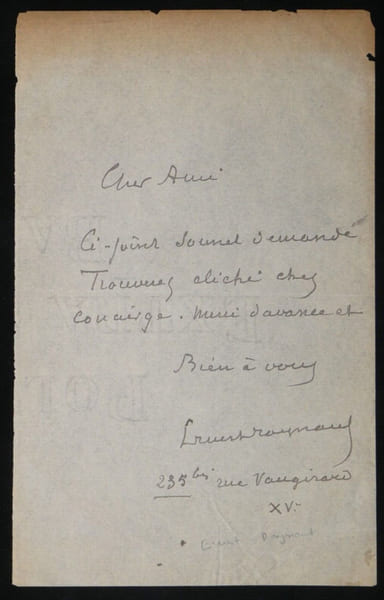 Cher Ami
Ci-joint Sonnet demandé
Trouverez cliché chez
concierge. Merci d'avance et
Bien à vous
Ernest Raynaud
235 bis rue Vaugirard
XV.
Ernest Raynaud